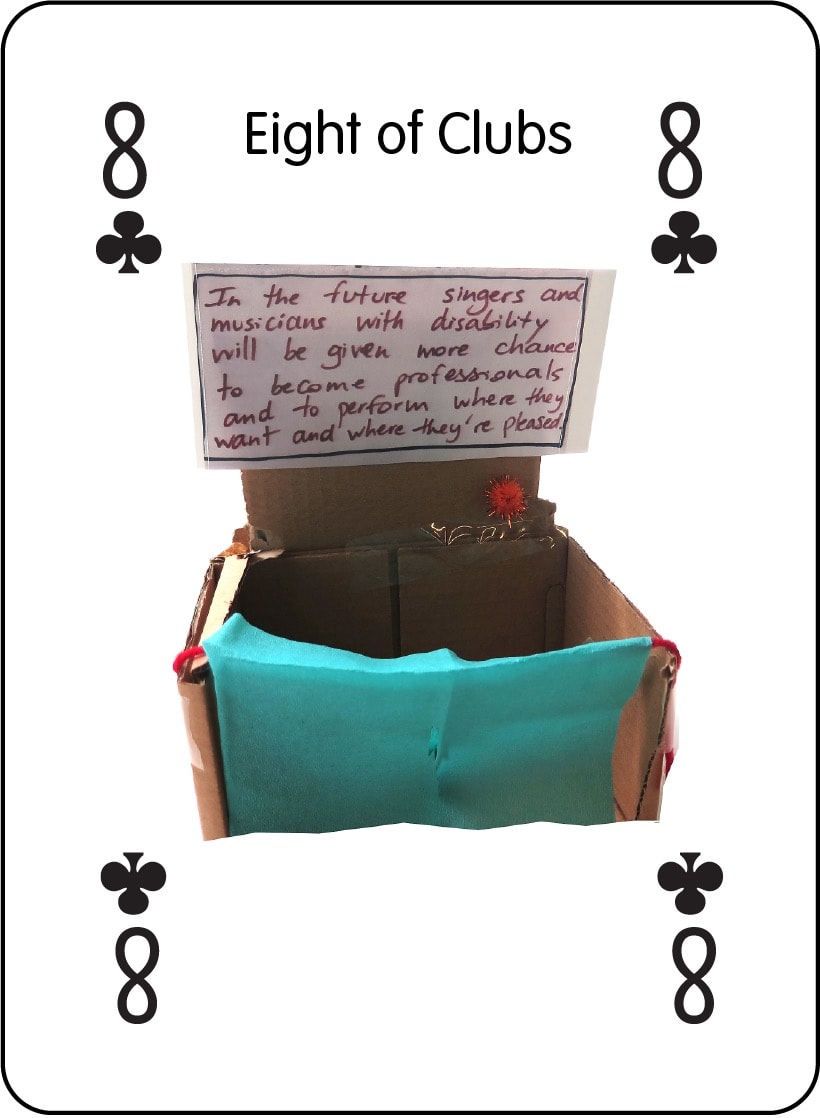 8 Eight of Clubs 8
In the future singers and
musicians with disability
will be given more chance
to become professionals
and to perform where they
want and where they're pleased.
8 8